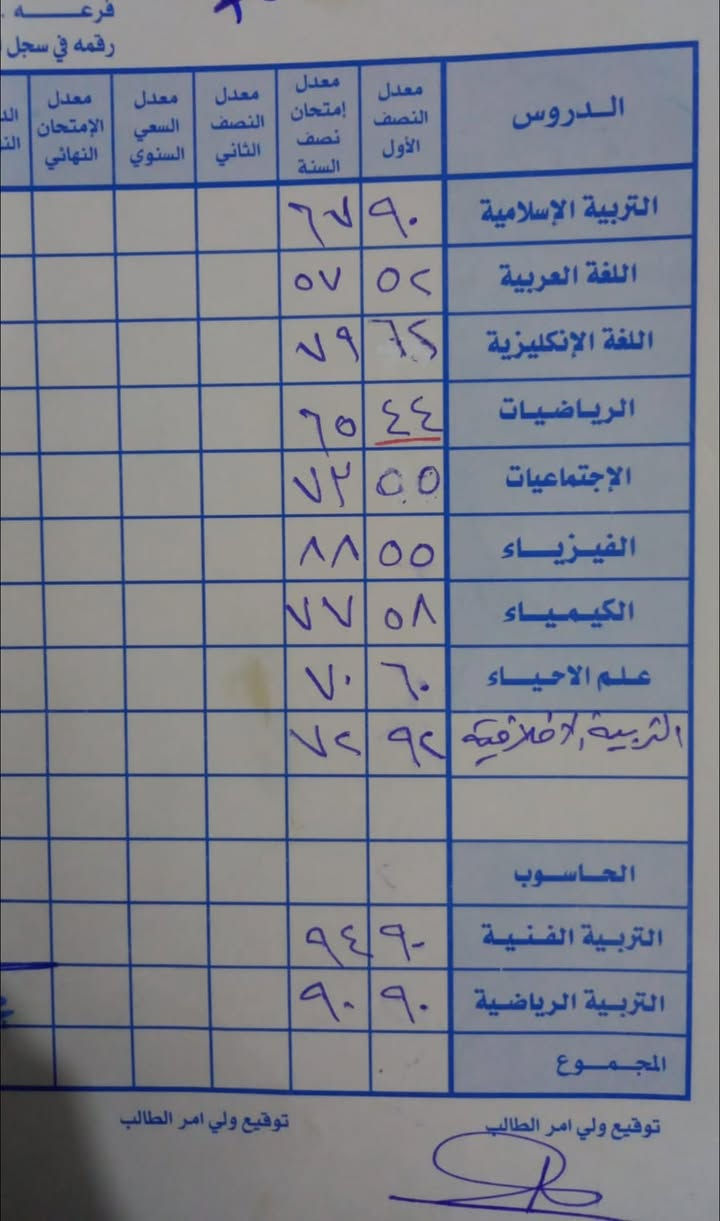 فرعـــه
رقمه في سجل
الـدروس معدل النصف الأول معدل إمتحان نصف السنة معدل النصف الثاني معدل السعي السنوي معدل الإمتحان النهائي
التربية الإسلامية ٩٠ ٦٧
اللغة العربية ٥٢ ٥٧
اللغة الإنكليزية ٦٢ ٧٩
الرياضيات ٤٤ ٦٥
الإجتماعيات ٥٥ ٧٣
الفيزياء ٥٥ ٨٨
الكيمياء ٥٨ ٧٧
علم الاحياء ٦٠ ٧٠
التربية الاخلاقية ٩٢ ٧٢
الحاسوب
التربية الفنية ٩٠ ٩٤
التربية الرياضية ٩٠ ٩٠
المجموع
توقيع ولي امر الطالب توقيع ولي امر الطالب